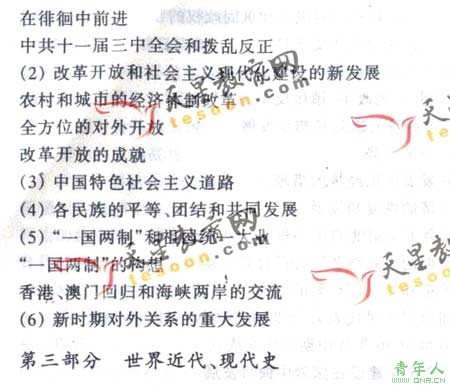 在徘徊中前进
中共十一届三中全会和拨乱反正
(2) 改革开放和社会主义现代化建设的新发展
农村和城市的经济体制改革
全方位的对外开放
改革开放的成就
(3) 中国特色社会主义道路
(4) 各民族的平等、团结和共同发展
(5) “一国两制”和祖国统一大业
“一国两制”的构想
香港、澳门回归和海峡两岸的交流
(6) 新时期对外关系的重大发展
第三部分 世界近代、现代史
天星教育网
tesoon.com
天星教育网
tesoon.com
天星教育网
tesoon.com
天星教育网
tesoon.com
青年人
WWW.QNR.CN